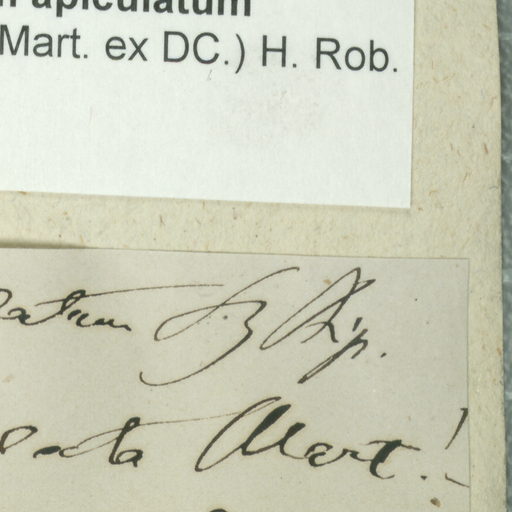 apiculatum
Mart. ex DC.) H. Rob.
latum Sz Bip.
Mart.!